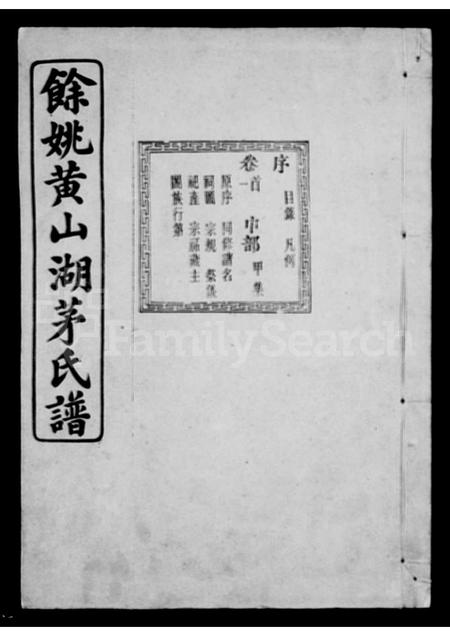 餘姚黄山湖茅氏譜
序
目錄 凡例
卷首 中部 甲集
一
原序 同修譜名
祠圖 宗規 祭儀
祀產 宗祠藏主
闔族行第
FamilySearch